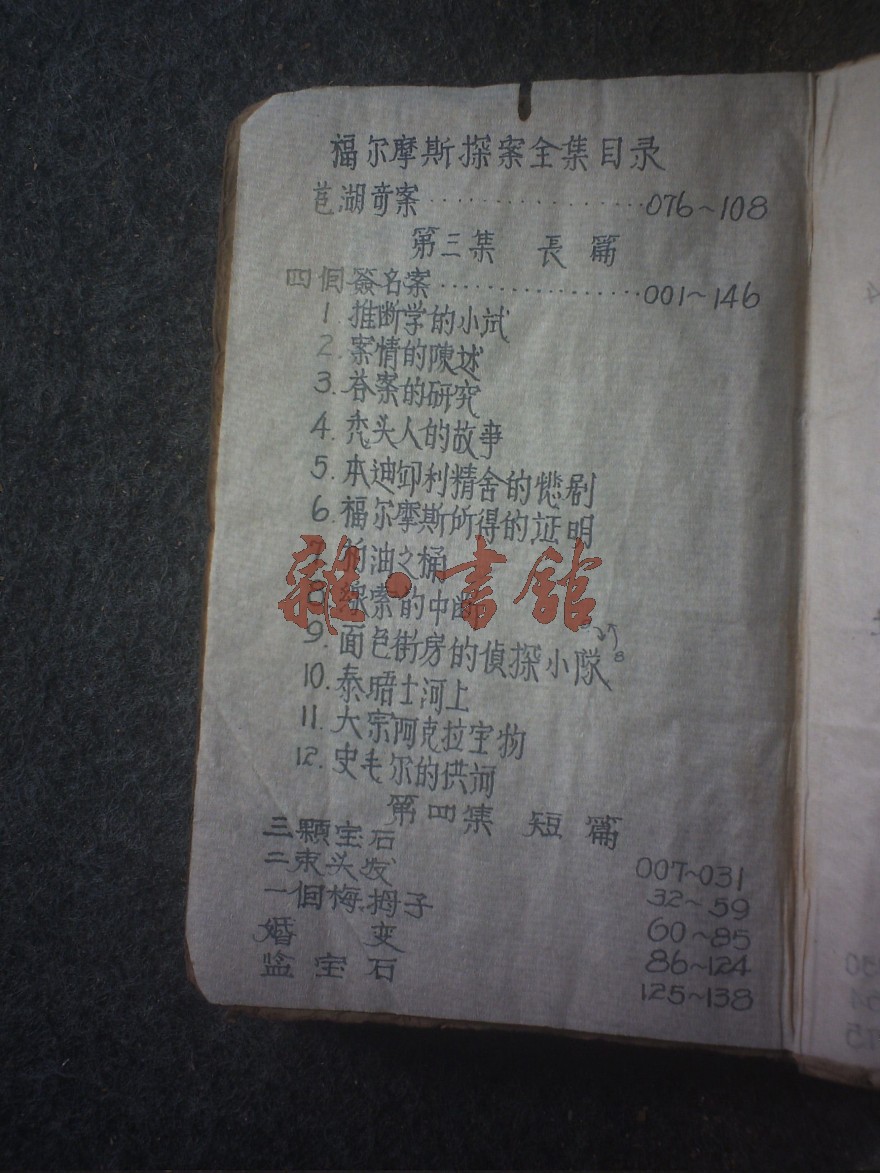 福尔摩斯探案全集目录
芭湖奇案·················076~108
第三集 長篇
四個簽名案·················001~146
1. 推断学的小試
2. 案情的陳述
3. 答案的研究
4. 秃头人的故事
5. 本迪卯利精舍的惨剧
6. 福尔摩斯所得的証明
7. 油之桶
8. 索的中断
9. 面包街房的偵探小隊
8
10. 泰晤士河上
11. 大宗阿克拉宝物
12. 史毛尔的供词
第四集 短篇
三顆宝石 007~031
二束头发 32~59
一個梅拇子 60~85
婚变 86~124
蓝宝石 125~138
雜·書館